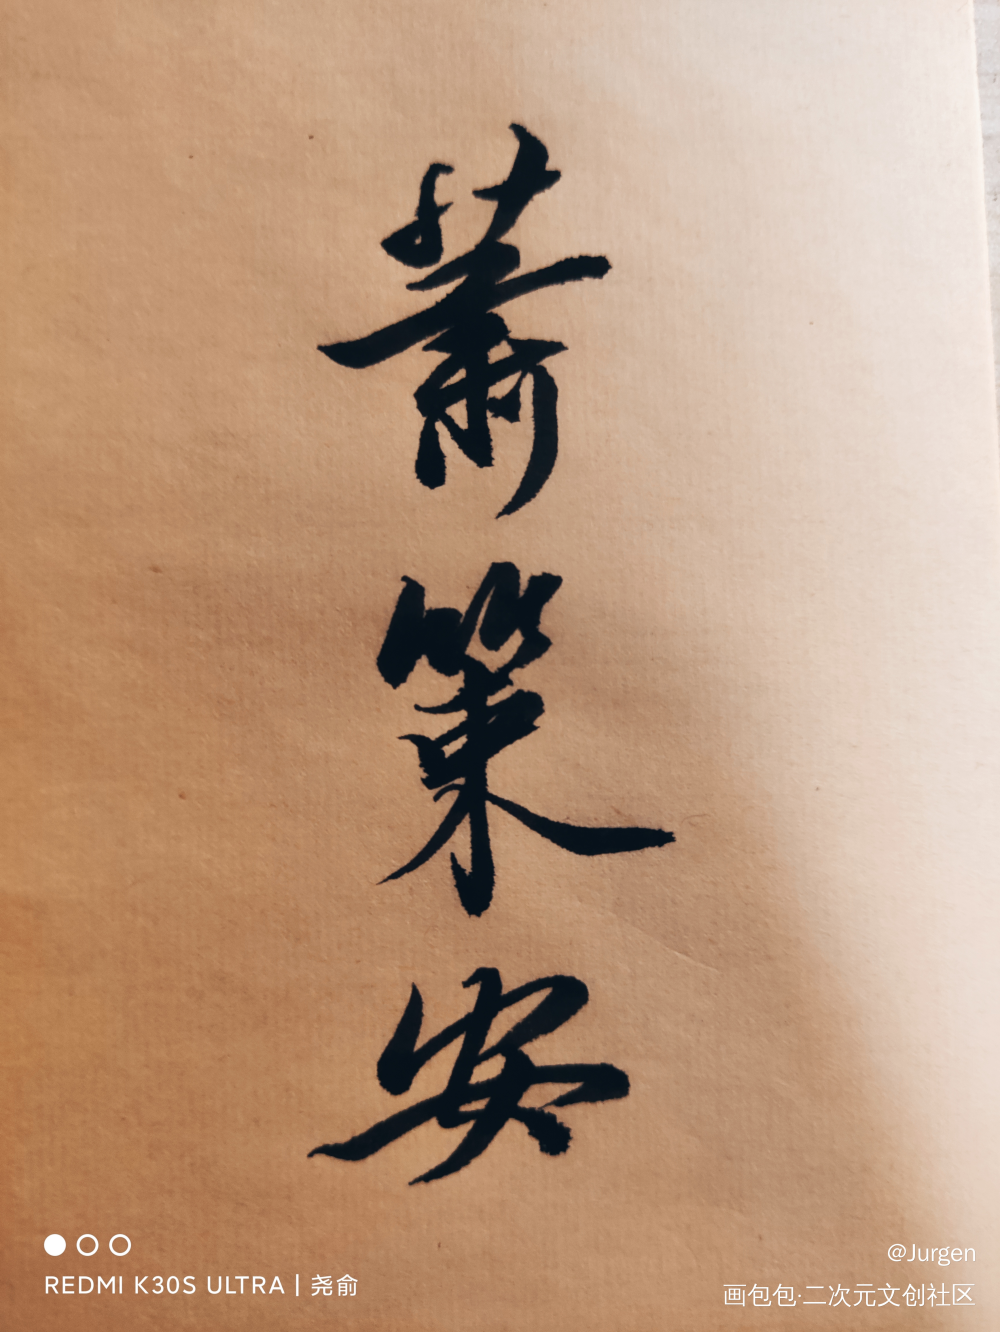 萧策安
REDMI K30S ULTRA | 尧俞
@Jurgen
画包包·二次元文创社区